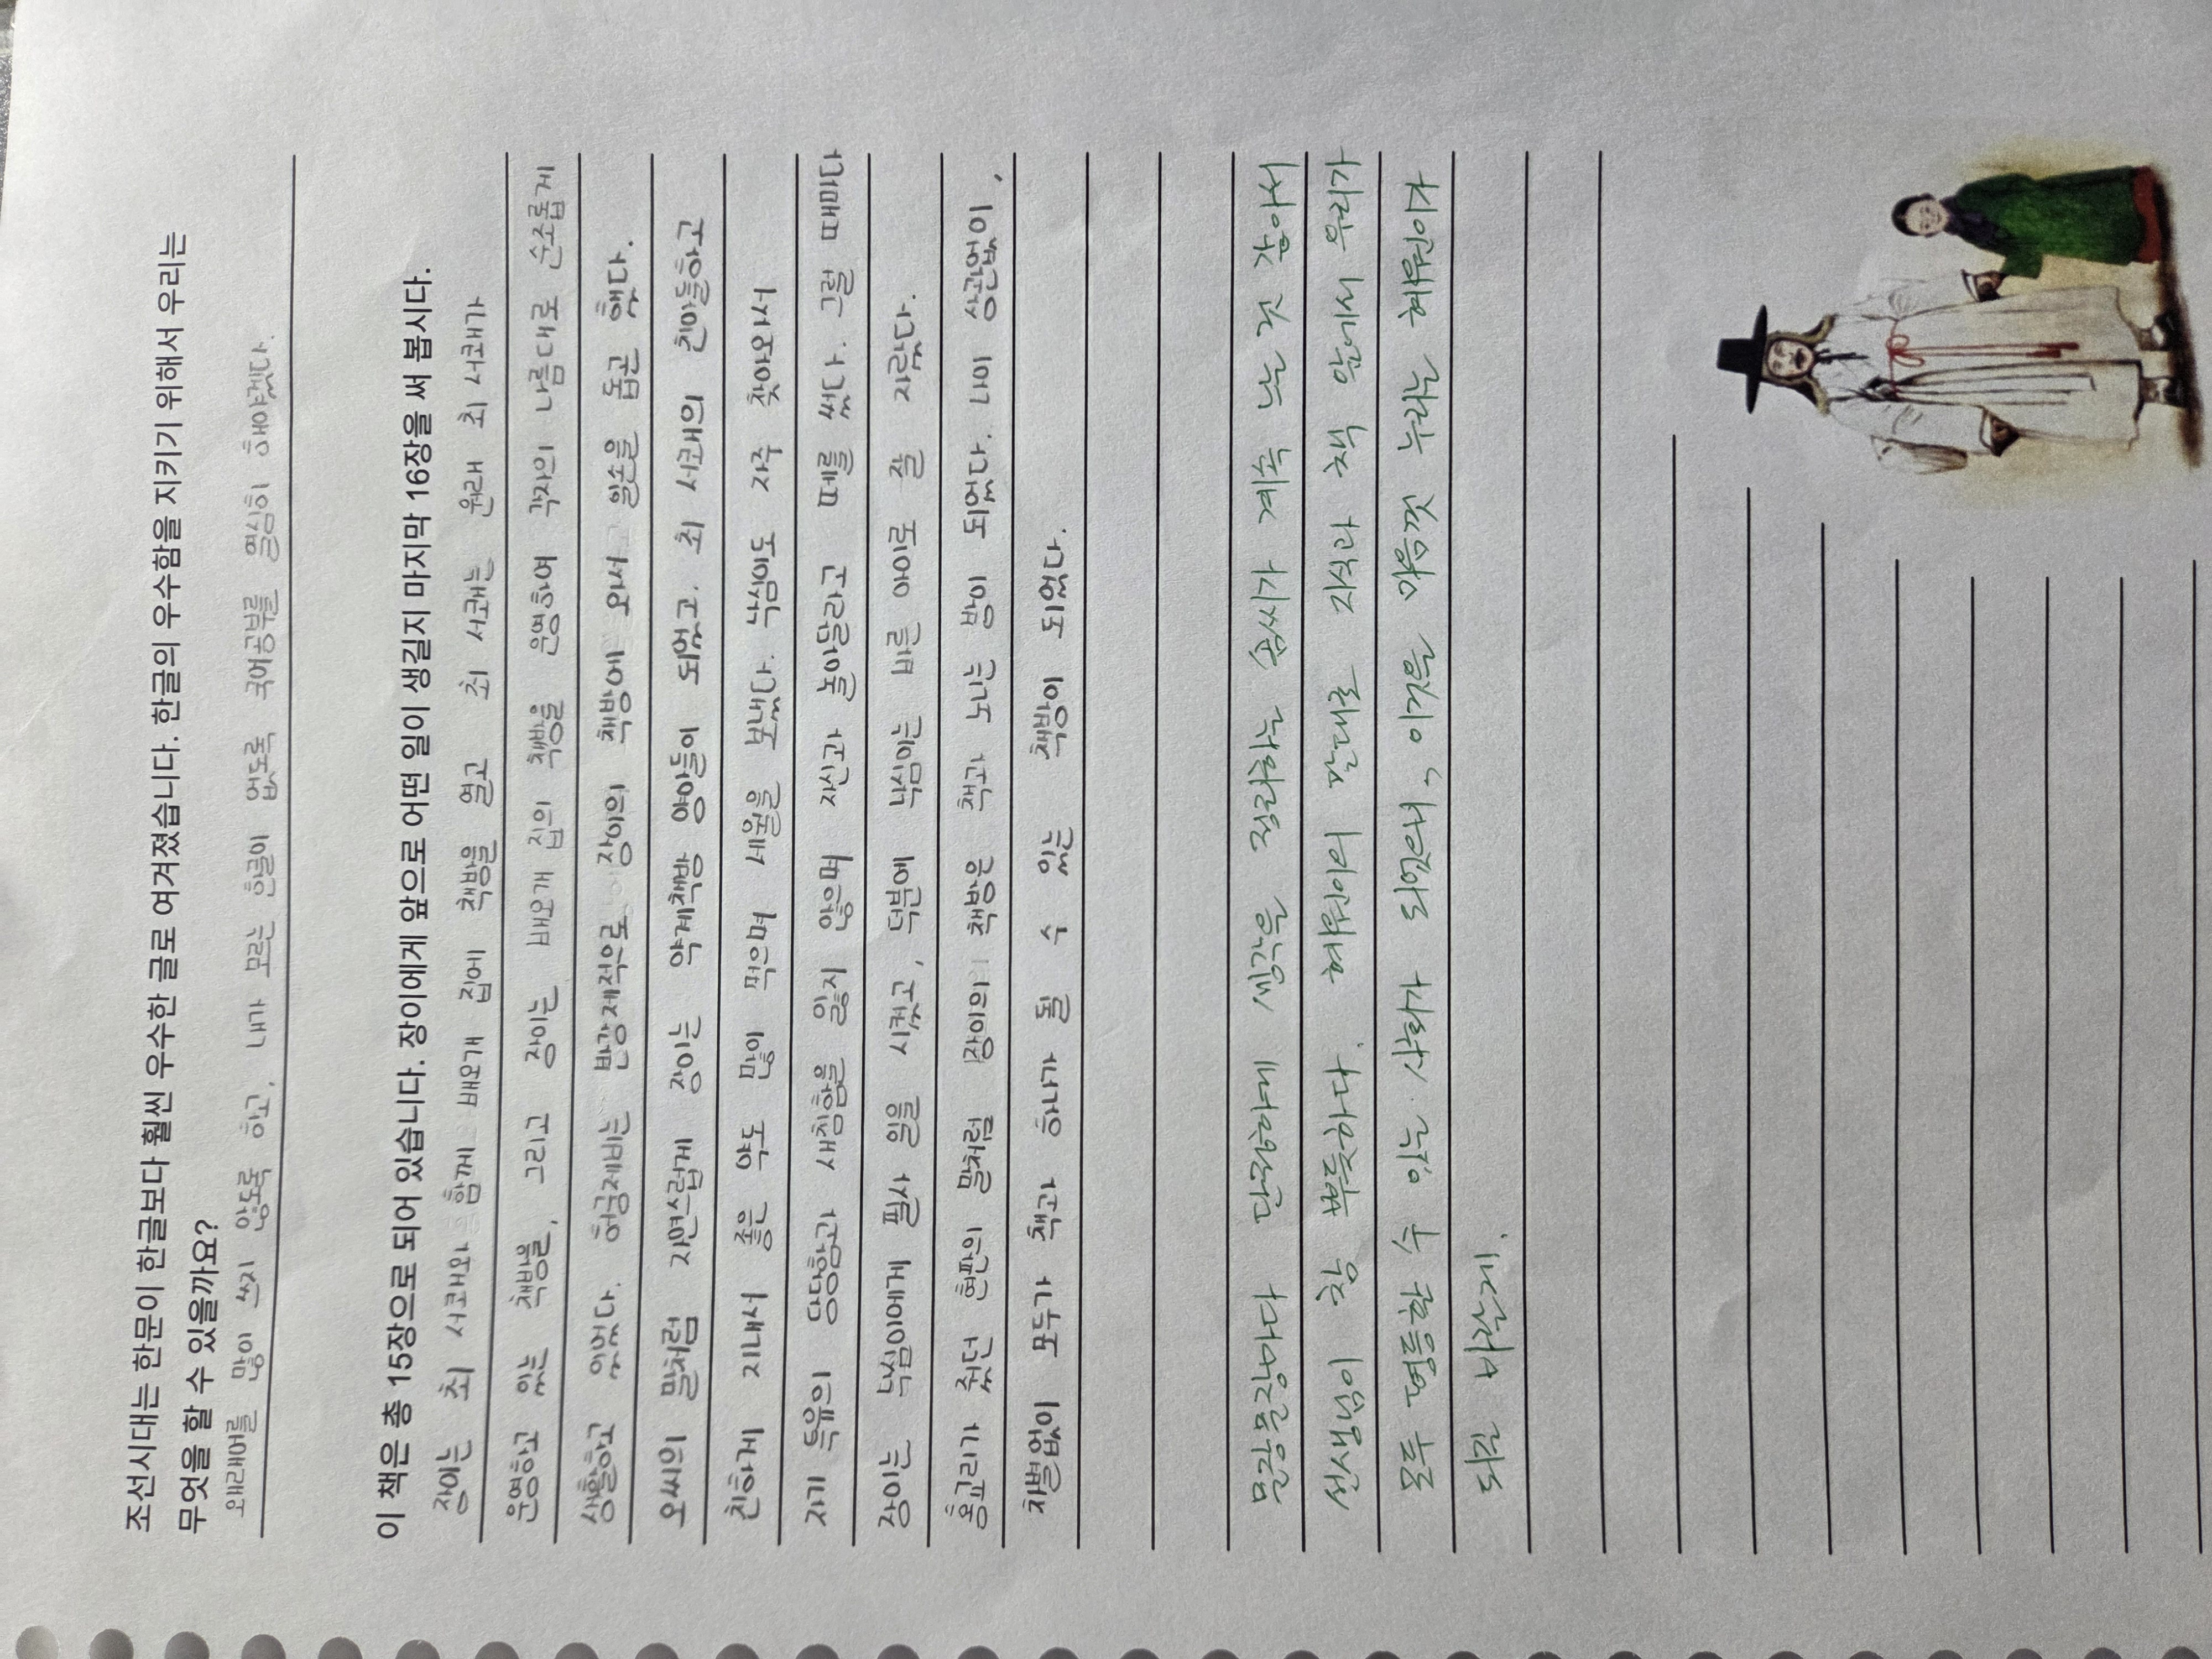 조선시대는 한문이 한글보다 훨씬 우수한 글로 여겨졌습니다. 한글의 우수함을 지키기 위해서 우리는
무엇을 할 수 있을까요?
외래어를 많이 쓰지 않도록 하고, 내가 모르는 한글이 없도록 국어공부를 열심히 해야겠다.
이 책은 총 15장으로 되어 있습니다. 장이에게 앞으로 어떤 일이 생길지 마지막 16장을 써 봅시다.
장이는 최 서쾌와 함께 배오개 집에 책방을 열고 최 서쾌는 원래 최 서쾌가
운영하고 있는 책방을, 그리고 장이는 배오개 집의 책방을 운영하여 각자의 나름대로 순조롭게
생활하고 있었다. 허궁제비는 반강제적으로 장이의 책방에 와서 일손을 돕곤 했다.
오씨의 말처럼 자연스럽게 장이는 약계책방 양아들이 되었고, 최 서쾌의 친아들하고
친하게 지내서 좋은 약도 많이 먹으며 세월을 보냈다. 낙심이도 자주 찾아와서
자기 특유의 당당함과 새침함을 잃지 않으며 자신과 놀아달라고 떼를 썼다. 그럴 때마다
장이는 낙심이에게 필사 일을 시켰고, 덕분에 낙심이는 바른 어이로 잘 자랐다.
홍교리가 줬던 현판의 말처럼 장이의 책방은 책과 노는 방이 되었다. 나이 상관없이,
차별없이 모두가 책과 하나가 될 수 있는 책방이 되었다.
문장문장마다 단정하게 생각을 정리하는 솜씨가 계속 느는 것 같아서
선생님이 참 뿌듯하다. 혜원이의 말대로 지식과 책 안에서 우리가
모두 평등할 수 있는 사회가 되었거니, 이것을 마음껏 누리는 혜원이가
되길 바랄게.